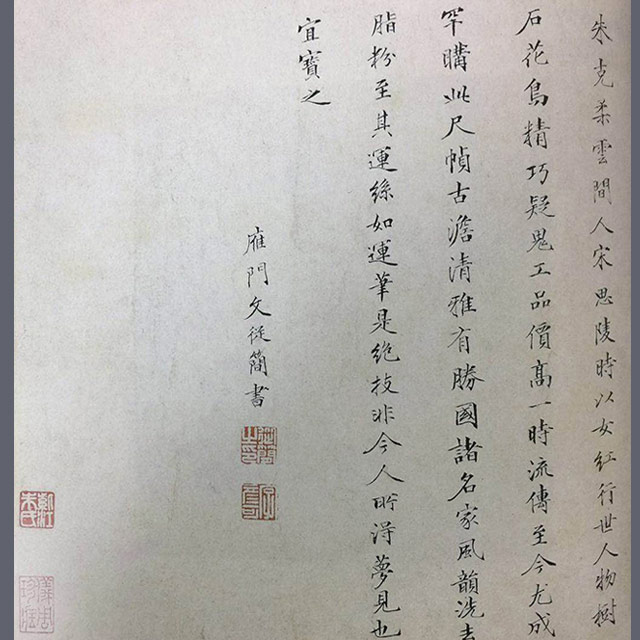 朱克柔雲間人宋思陵時以女紅行世人物樹
石花鳥精巧疑鬼工品價高一時流傳至今尤成
罕購此尺幀古澹清雅有勝國諸名家風韻洗去
脂粉至其運絲如運筆是絶技非今人所得夢見也
宜寶之
雁門文從簡書